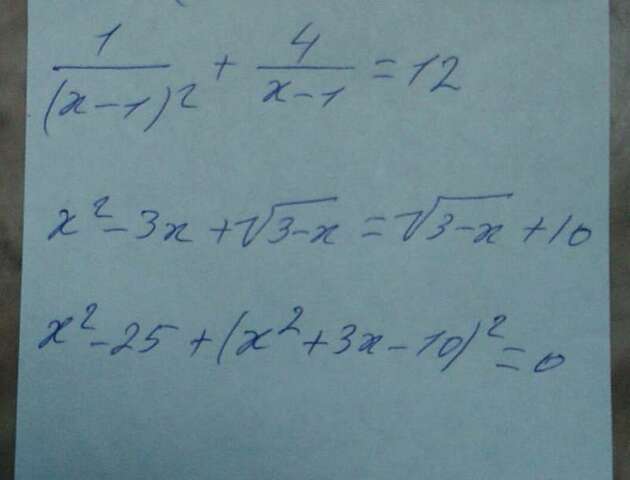 1/(x-1)² + 4/(x-1) = 12
x² - 3x + √(3-x) = √(3-x) + 10
x² - 25 + (x² + 3x - 10)² = 0